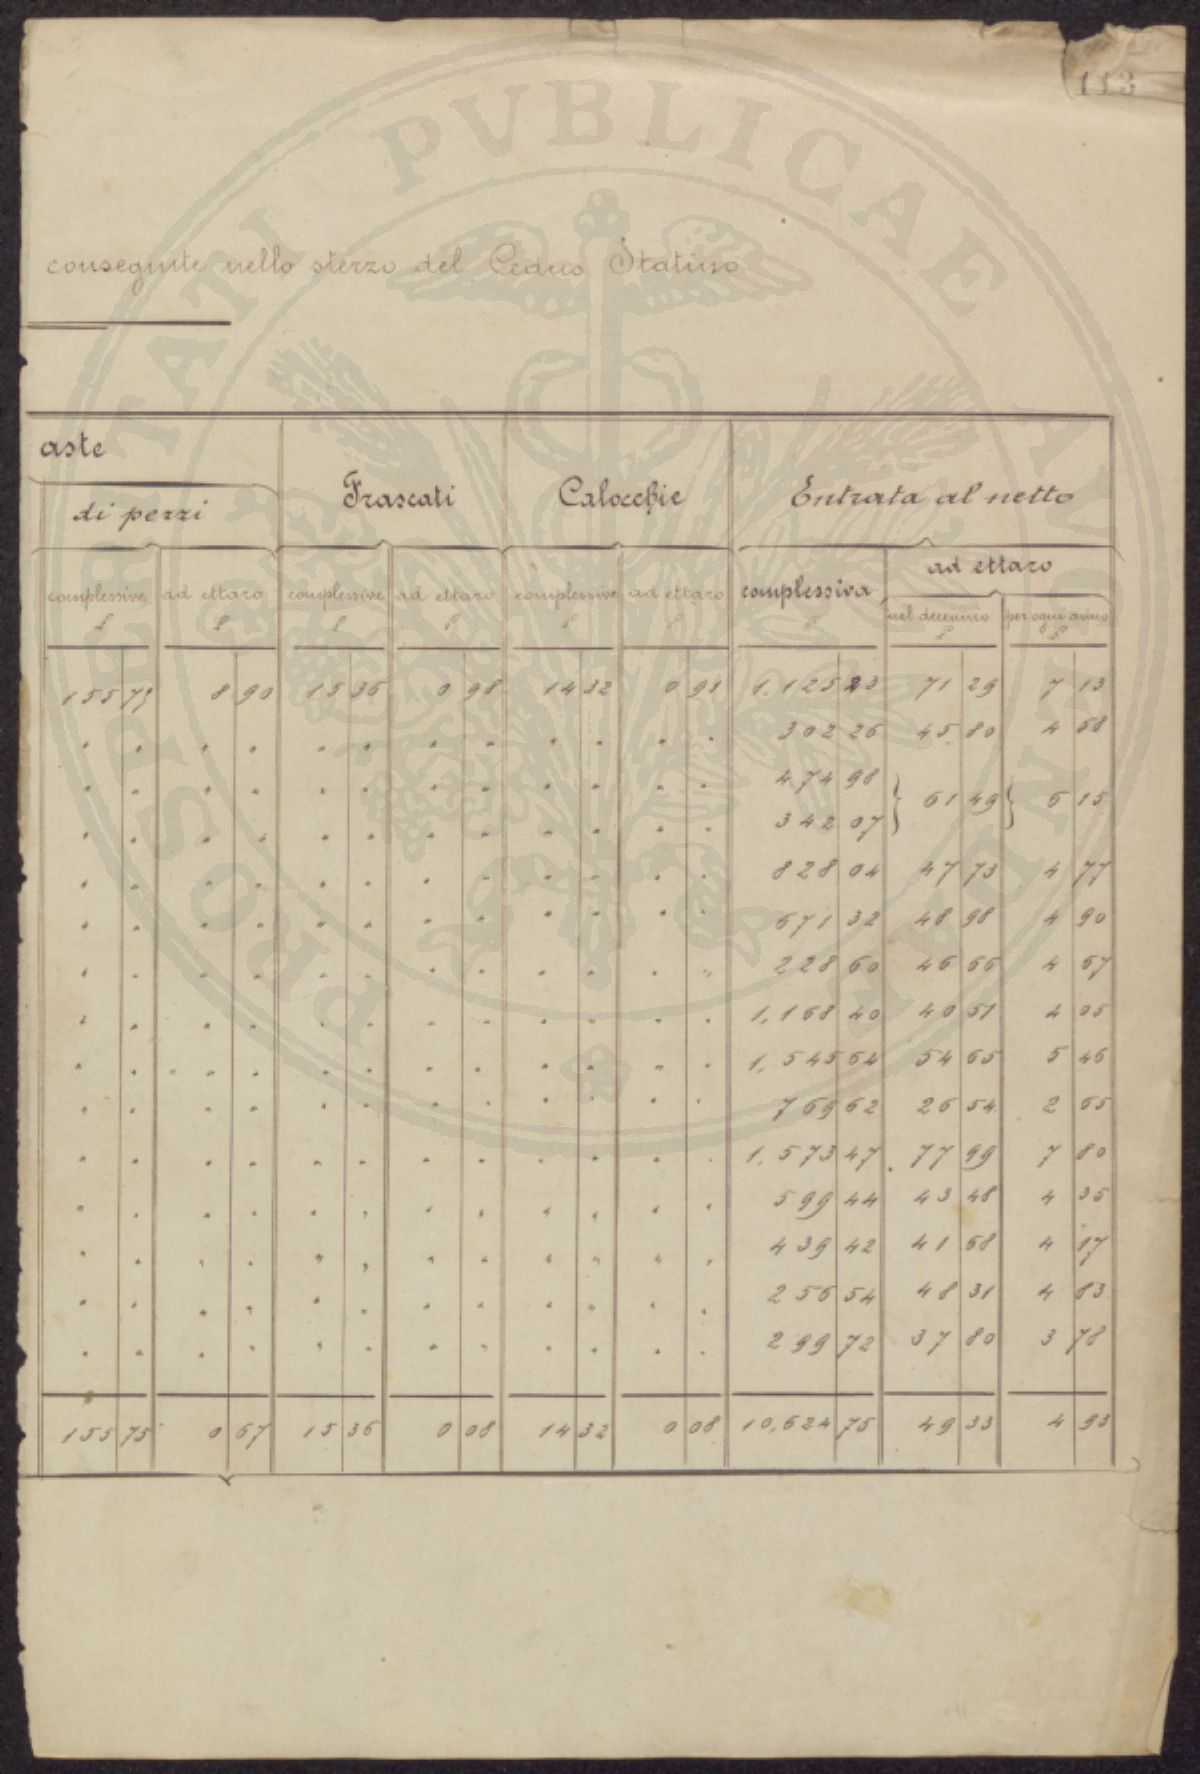 113
PROSPERITATI PVBLICAE AVGENDAE
conseguite nello sterzo del Ceduo Statuso
aste
di pezzi Frascati Calocchie Entrata al netto
ad ettaro
complessive ad ettaro complessive ad ettaro complessive ad ettaro complessiva nel decennio per ogni anno
£ £ £ £ £ £ £ £ £
155 79 8 90 15 36 0 98 14 32 0 91 1.125 23 71 29 7 13
302 26 45 80 4 58
474 98
61 49 6 15
342 07
828 04 47 73 4 77
671 32 48 98 4 90
228 60 46 66 4 67
1.168 40 40 51 4 05
1.545 64 54 65 5 46
769 62 26 54 2 65
1.573 47 77 99 7 80
599 44 43 48 4 35
439 42 41 68 4 17
256 54 48 31 4 83
299 72 37 80 3 78
155 75 0 67 15 36 0 08 14 32 0 08 10,624 75 49 33 4 93